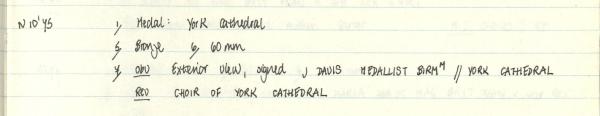 N10145 1, Medal: York Cathedral
5, Bronze 6, 60 mm
7, OBV Exterior view, signed J DAVIS MEDALLIST BIRMM // YORK CATHEDRAL
REV CHOIR OF YORK CATHEDRAL